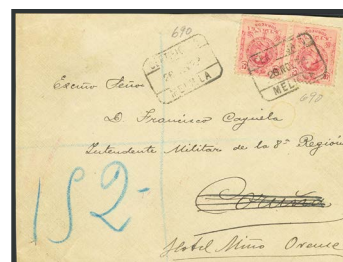 690
MELILLA
MELILLA
690
Excmo Señor
D Francisco Cayuela
Intendente Militar de la 8ª Región
152-
Coruña
Hotel Miño Orense